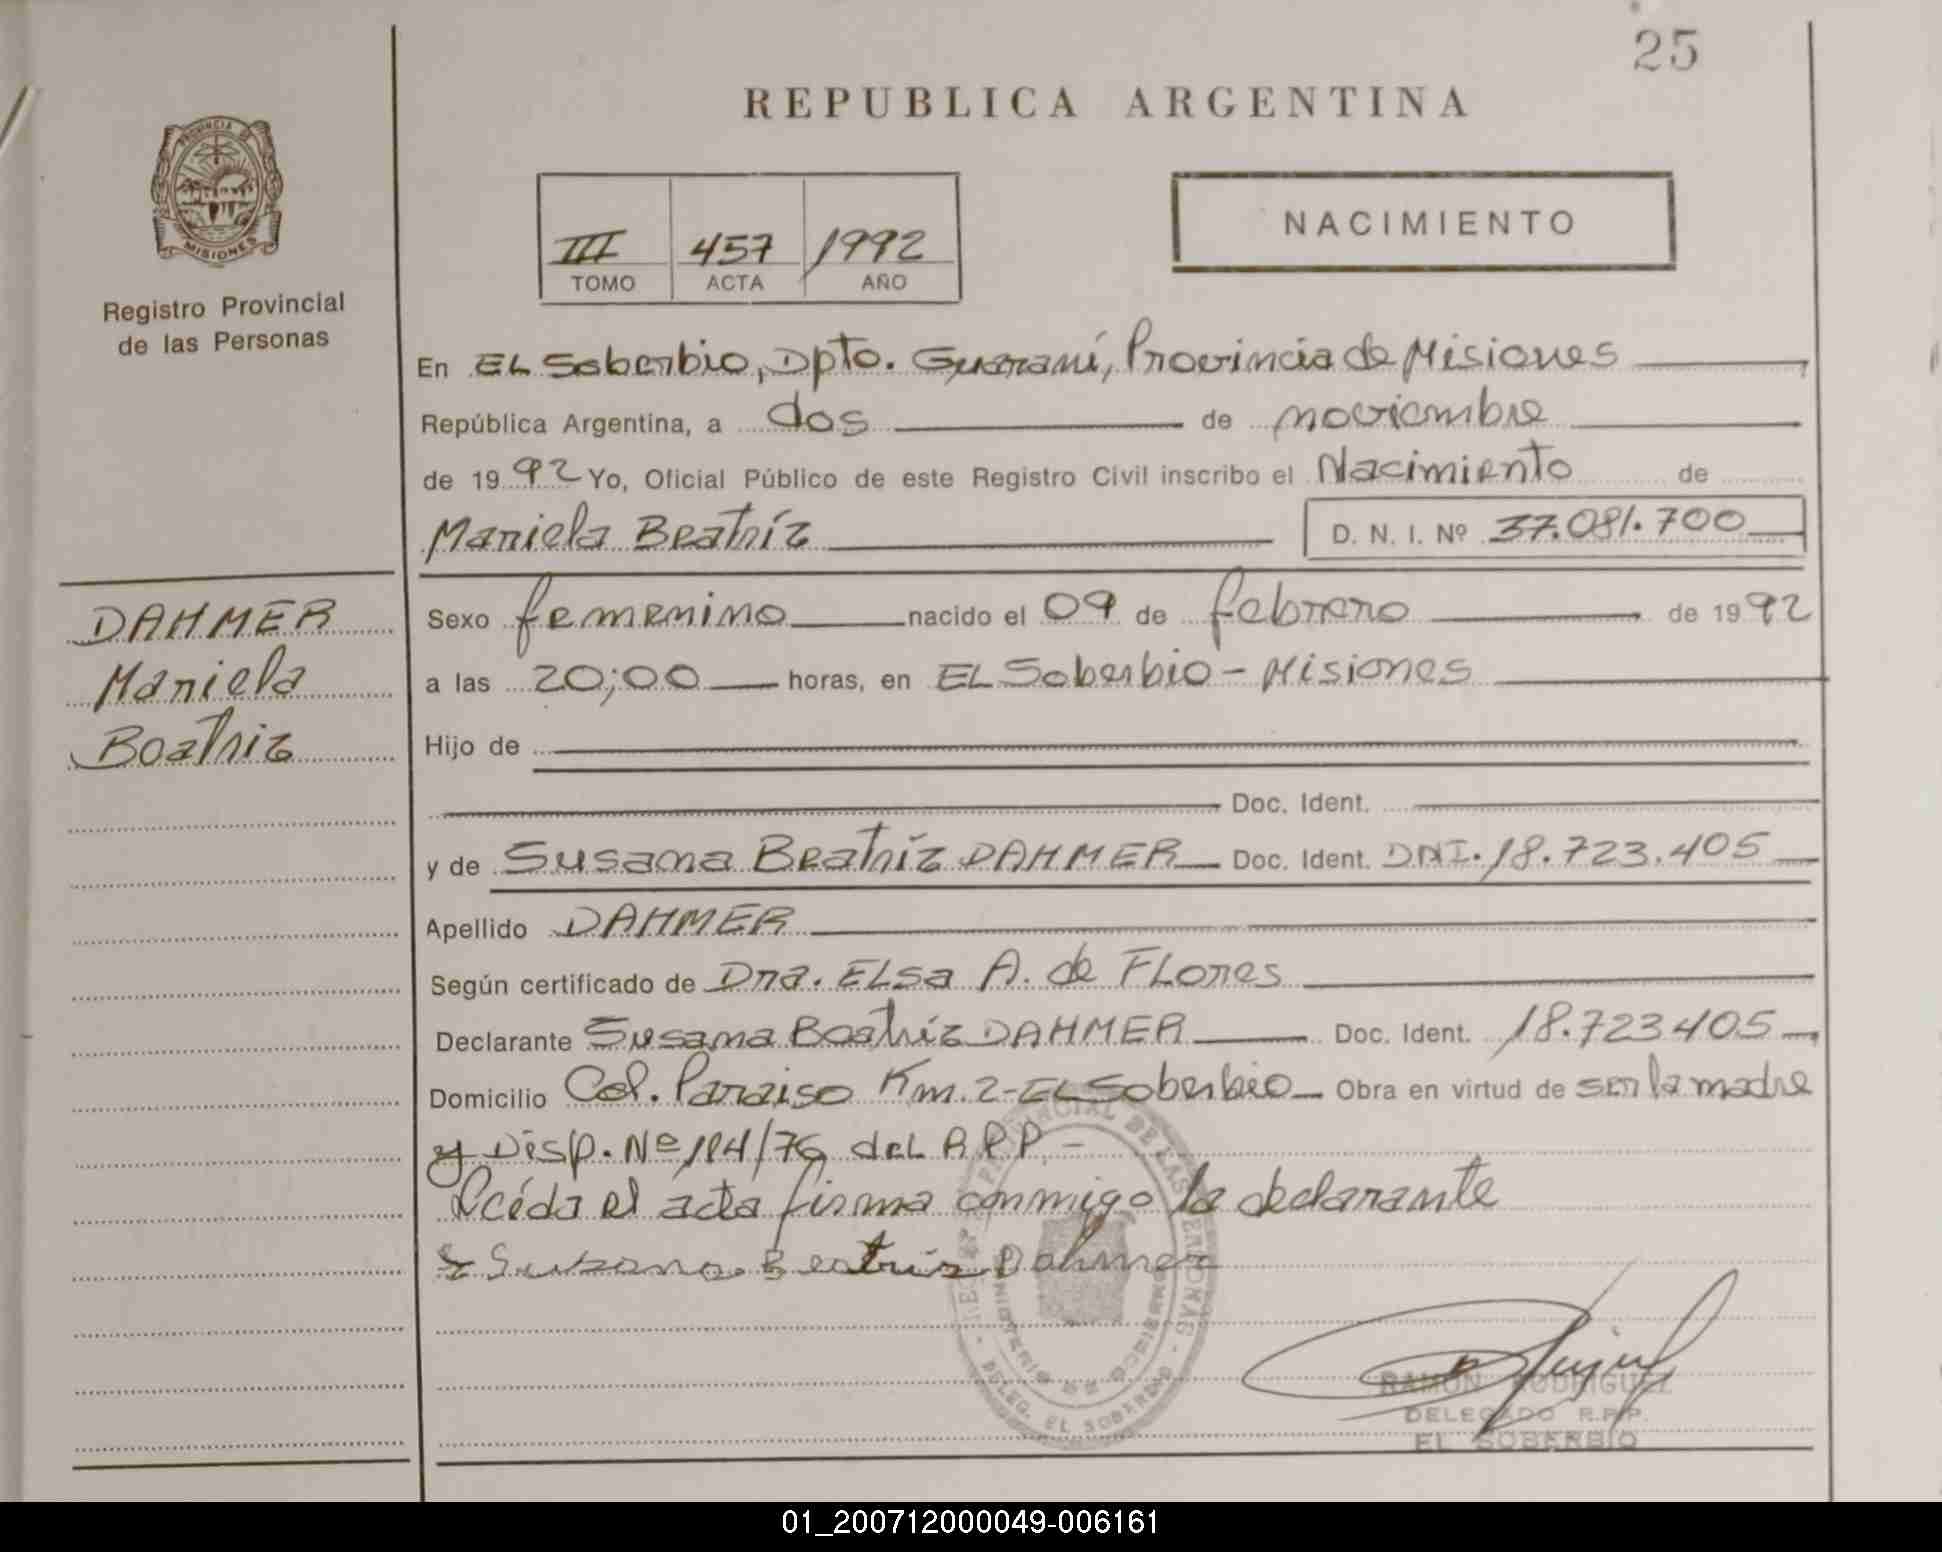 25
REPUBLICA ARGENTINA
PROVINCIA DE
MISIONES
Registro Provincial
de las Personas
III 457 1992
TOMO ACTA AÑO
NACIMIENTO
En EL Soberbio, Dpto. Guaraní, Provincia de Misiones
República Argentina, a dos de noviembre
de 1992 Yo, Oficial Público de este Registro Civil inscribo el Nacimiento de
Mariela Beatríz D. N. I. Nº 37.081.700
DAHMER
Mariela
Beatriz
Sexo femenino nacido el 09 de febrero de 1992
a las 20;00 horas, en EL Soberbio - Misiones
Hijo de
Doc. Ident.
y de Susana Beatríz DAHMER Doc. Ident. DNI. 18.723.405
Apellido DAHMER
Según certificado de Dra. ELsa A. de FLores
Declarante Susana Beatríz DAHMER Doc. Ident. 18.723405
Domicilio Col. Paraiso Km. 2-EL Soberbio Obra en virtud de ser la madre
y Disp. Nº 114/76 del R.P.P. -
Leída el acta firma conmigo la declarante
Susana Beatris Dahmer
DELEG. EL SOBERBIO
RAMON RODRIGUEZ
DELEGADO R.P.P.
EL SOBERBIO
01_200712000049-006161